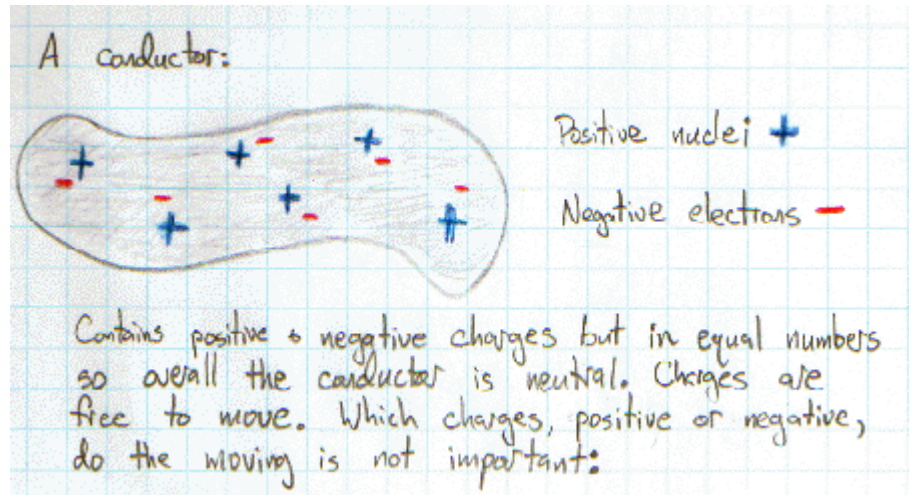 A conductor:
Positive nuclei +
Negative electrons -
Contains positive & negative charges but in equal numbers
so overall the conductor is neutral. Charges are
free to move. Which charges, positive or negative,
do the moving is not important: